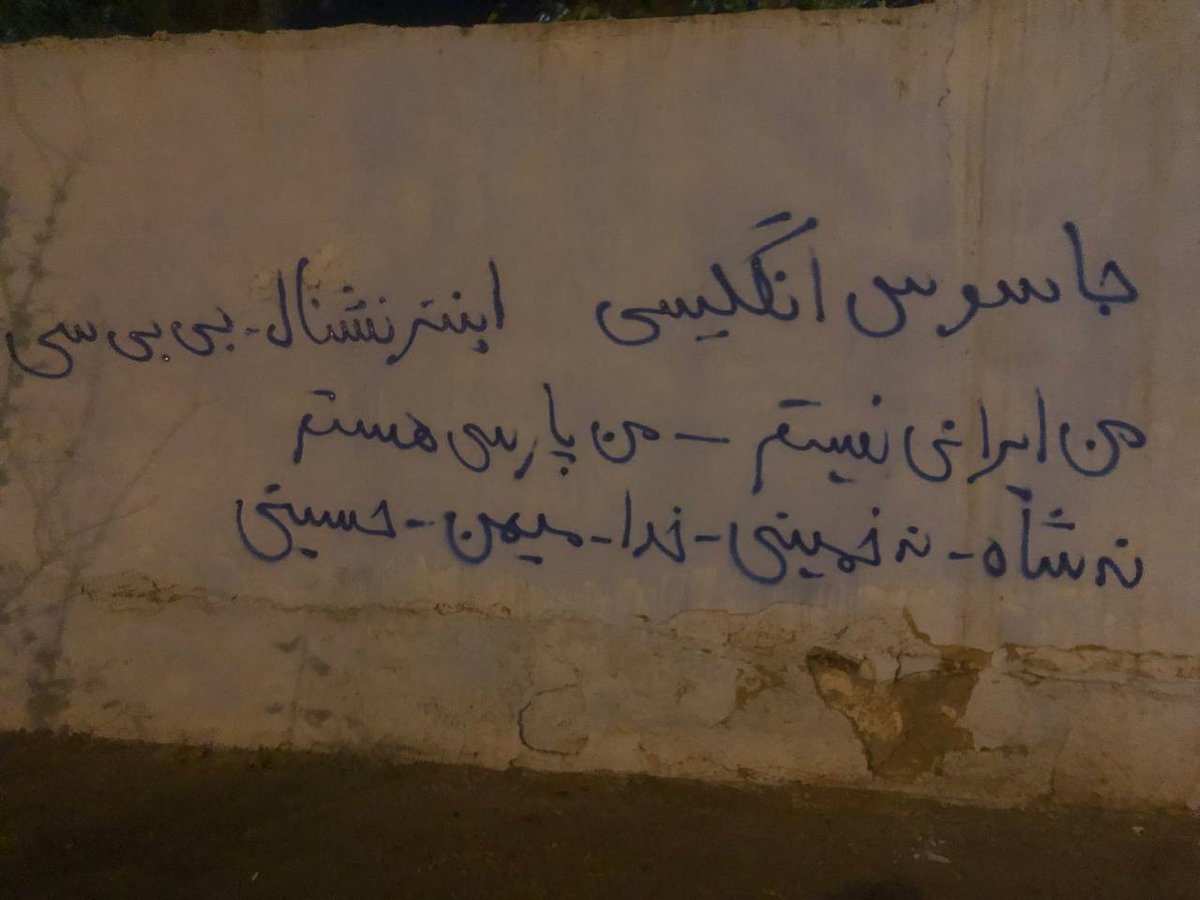 جاسوس انگلیسی اینترنشنال - بی بی سی
من ایرانی نیستم - من پارسی هستم
نه شاه - نه خمینی - خدا - میهن - حسینی